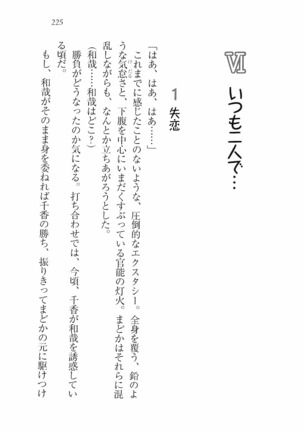 225
Ⅵ いつも二人で…
1 失恋
「はあ、はあ、はあ……」
これまでに感じたことのないような、圧倒的なエクスタシー。全身を覆う、鉛のよ
うな気怠さと、下腹を中心にいまだくすぶっている官能の灯火。まどかはそれらに混
乱しながらも、なんとか立ちあがろうとした。
(和哉……和哉はどこ?)
勝負がどうなったのか気になる。打ち合わせでは、今頃、千香が和哉を誘惑してい
る頃だ。
もし、和哉がそのまま身を委ねれば千香の勝ち、振りきってまどかの元に駆けつけ